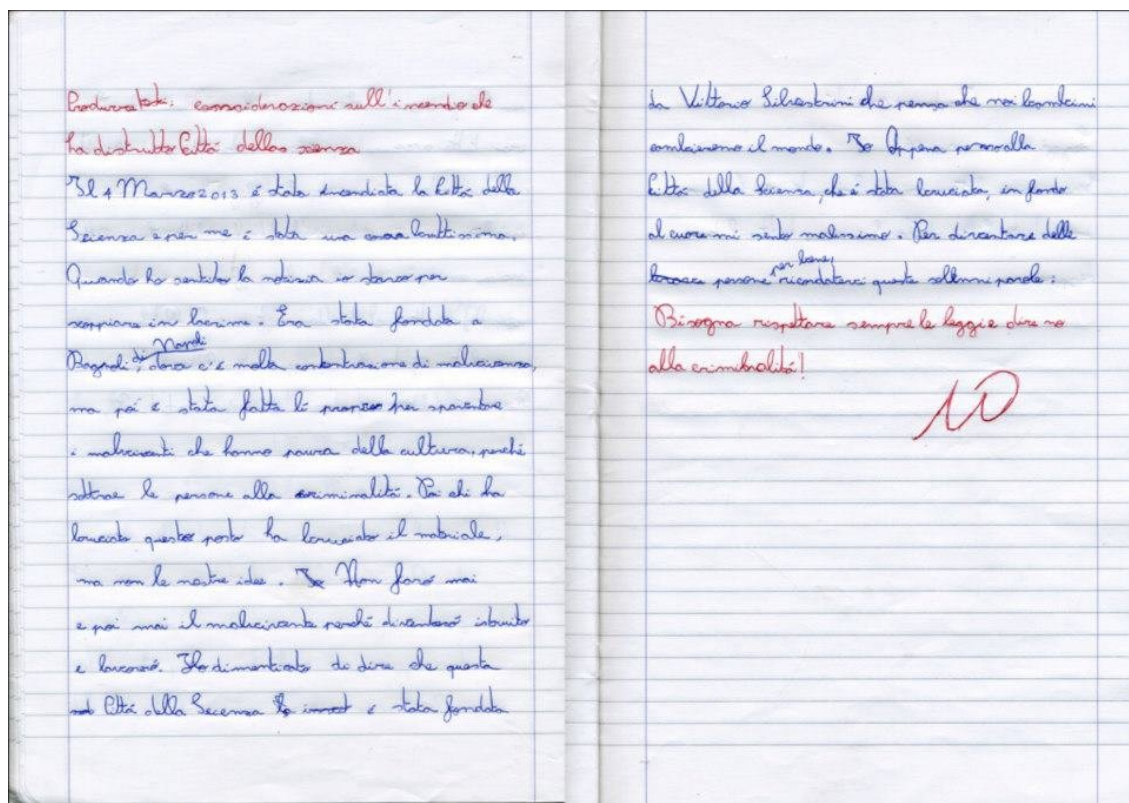 Produzione: considerazioni sull'incendio che
ha distrutto Città della scienza
Il 4 Marzo 2013 é stata incendiata la Città della
Scienza e per me è stata una cosa bruttissima.
Quando ho sentito la notizia io stavo per
scoppiare in lacrime. Era stata fondata a
Bagnoli di Napoli, dove c'è molta contentrazione di malvivenza,
ma poi è stata fatta lì proprio per spaventare
i malviventi che hanno paura della cultura, perché
sottrae le persone alla criminalità. Poi chi ha
bruciato questo posto ha bruciato il materiale,
ma non le nostre idee. Io Non farò mai
e poi mai il malvivente perché diventerò istruito
e lavorerò. Ho dimenticato di dire che questa
Città della Scienza è stata fondata
da Vittorio Silvestrini che pensa che noi bambini
cambieremo il mondo. Io Appena penso alla
Città della Scienza, che è stata bruciata, in fondo
al cuore mi sento malissimo. Per diventare delle
persone per bene, ricordatevi queste sollenni parole:
Bisogna rispettare sempre le leggi e dire no
alla criminalità!
10